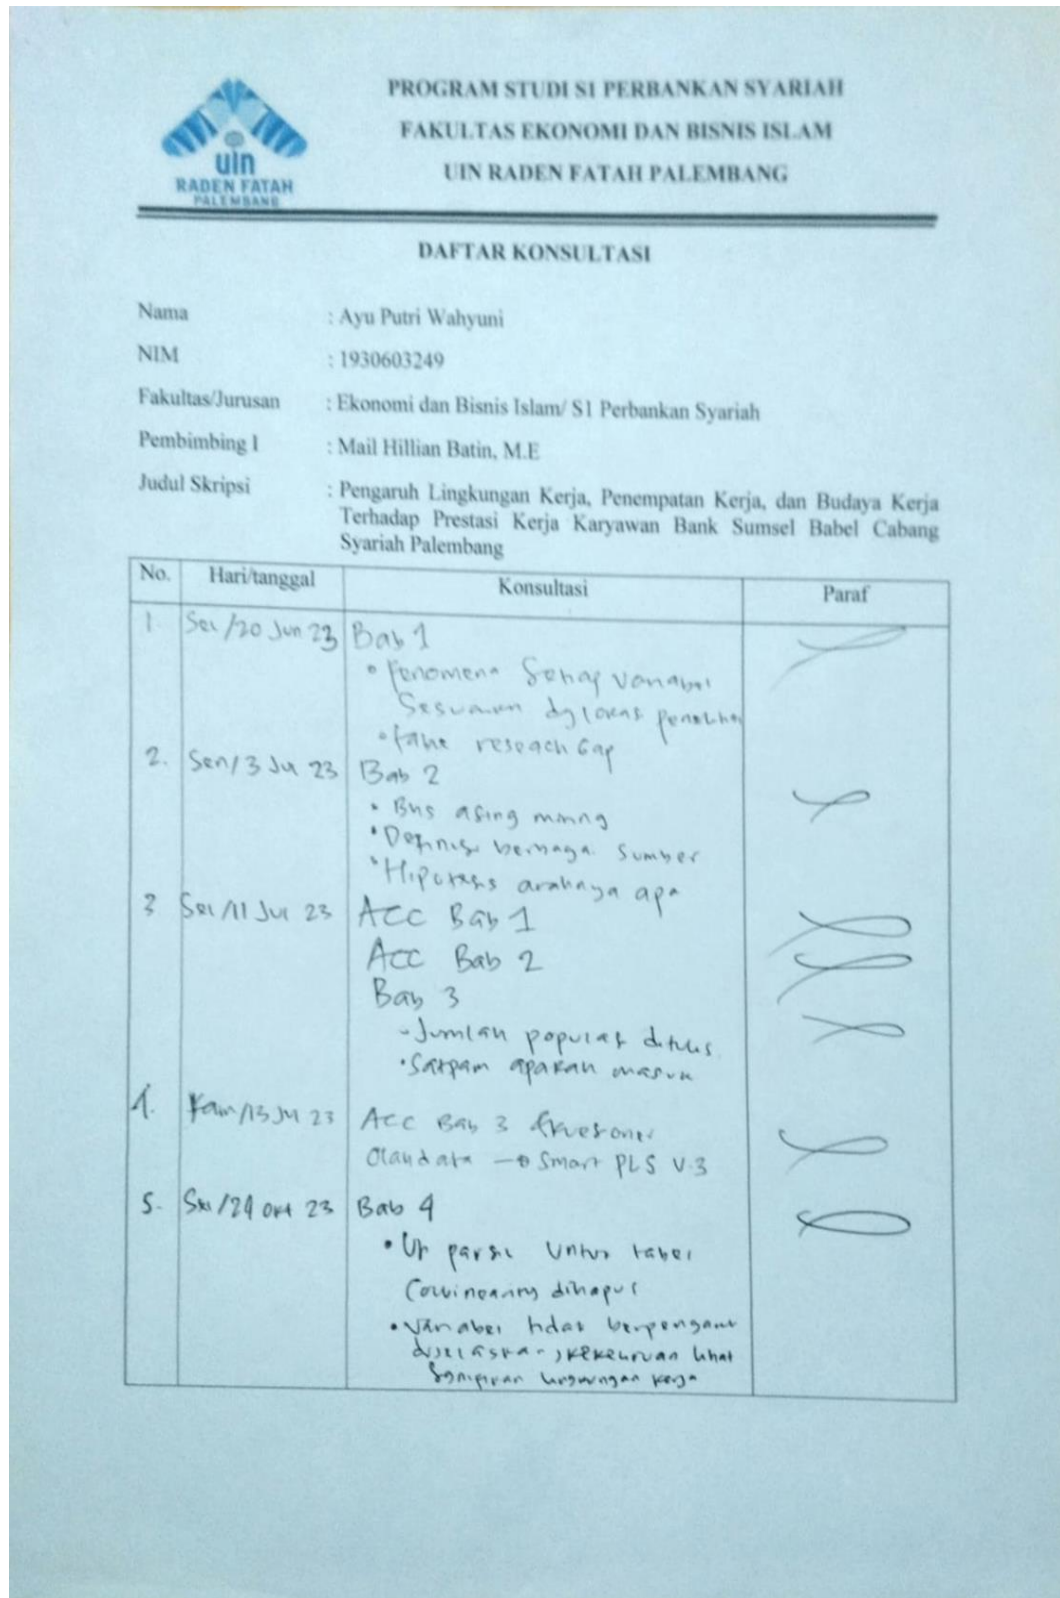 uin
RADEN FATAH
PALEMBANG
PROGRAM STUDI S1 PERBANKAN SYARIAH
FAKULTAS EKONOMI DAN BISNIS ISLAM
UIN RADEN FATAH PALEMBANG
DAFTAR KONSULTASI
Nama : Ayu Putri Wahyuni
NIM : 1930603249
Fakultas/Jurusan : Ekonomi dan Bisnis Islam/ S1 Perbankan Syariah
Pembimbing I : Mail Hillian Batin, M.E
Judul Skripsi : Pengaruh Lingkungan Kerja, Penempatan Kerja, dan Budaya Kerja
Terhadap Prestasi Kerja Karyawan Bank Sumsel Babel Cabang
Syariah Palembang
No. Hari/tanggal Konsultasi Paraf
1. Sel/20 Jun 23 Bab 1
• Fenomena Setiap variabel
Sesuaikan dg lokasi
• Gap
2. Sen/3 Jul 23 Bab 2
• asing miring
• Definisi berbagai sumber
• Hipotesis arahnya apa
3 Sel/11 Jul 23 ACC Bab 1
ACC Bab 2
Bab 3
- Jumlah populasi ditulis
• Satpam apakah masuk
4. Kam/13 Jul 23 ACC Bab 3
Olah data → Smart PLS V.3
5. Sel/24 Okt 23 Bab 4
• Uji untuk tabel
dihapus
• Variabel tidak berpengaruh
lihat
lingkungan kerja